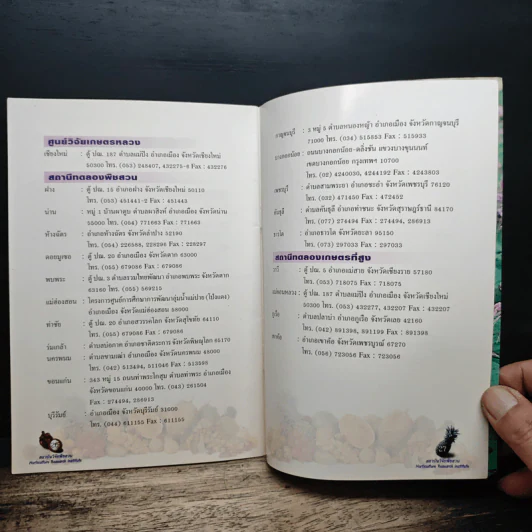 ศูนย์วิจัยเกษตรหลวง
เชียงใหม่ : ตู้ ปณ. 187 ตำบลแม่ปิง อำเภอเมือง จังหวัดเชียงใหม่
50300 โทร. (053) 248407, 432275-6 Fax : 432276
สถานีทดลองพืชสวน
ฝาง : ตู้ ปณ. 15 อำเภอฝาง จังหวัดเชียงใหม่ 50110
โทร. (053) 451441-2 Fax : 451443
น่าน : หมู่ 1 อำเภอเมือง จังหวัดน่าน
55000 โทร. (054) 771665 Fax : 771663
ห้างฉัตร : อำเภอห้างฉัตร จังหวัดลำปาง 52190
โทร. (054) 226586, 228298 Fax : 228297
ดอยมูเซอ : ตู้ ปณ. 20 อำเภอเมือง จังหวัดตาก 63000
โทร. (055) 679086 Fax : 679086
พบพระ : ตู้ ปณ. 5 ตำบลรวมไทยพัฒนา อำเภอพบพระ จังหวัดตาก
63160 โทร. (055) 569215
แม่ฮ่องสอน : โครงการศูนย์การศึกษาการพัฒนาลุ่มน้ำแม่ปาย (โป่งแดง)
อำเภอเมือง จังหวัดแม่ฮ่องสอน 58000
ท่าชัย : ตู้ ปณ. 20 อำเภอสวรรคโลก จังหวัดสุโขทัย 64110
โทร. (055) 679086 Fax : 679086
ร่มเกล้า : ตำบลบ่อภาค อำเภอชาติตระการ จังหวัดพิษณุโลก 65170
นครพนม : ตำบลขามเฒ่า อำเภอเมือง จังหวัดนครพนม 48000
โทร. (042) 513494, 511946 Fax : 513595
ขอนแก่น : 343 หมู่ 15 ถนนท่าพระโกสุม ตำบลท่าพระ อำเภอเมือง
จังหวัดขอนแก่น 40000 โทร. (043) 261504
Fax : 274494, 258913
บุรีรัมย์ : อำเภอเมือง จังหวัดบุรีรัมย์ 31000
โทร. (044) 611155 Fax : 611155
สถาบันวิจัยพืชสวน
Horticulture Research Institute
กาญจนบุรี : 3 หมู่ 5 ตำบลหนองหญ้า อำเภอเมือง จังหวัดกาญจนบุรี
71000 โทร. (034) 515853 Fax : 515933
บางกอกน้อย : ถนนบางกอกน้อย-ตลิ่งชัน แขวงบางขุนนนท์
เขตบางกอกน้อย กรุงเทพฯ 10700
โทร. (02) 4240030, 4244192 Fax : 4243803
เพชรบุรี : ตำบลสามพระยา อำเภอชะอำ จังหวัดเพชรบุรี 76120
โทร. (032) 471450 Fax : 472452
คันธุลี : ตำบลคันธุลี อำเภอท่าชนะ จังหวัดสุราษฎร์ธานี 84170
โทร. (077) 274494 Fax : 274494, 286913
ธารโต : อำเภอธารโต จังหวัดยะลา 95150
โทร. (073) 297033 Fax : 297033
สถานีทดลองเกษตรที่สูง
วาวี : ตู้ ปณ. 5 อำเภอแม่สาย จังหวัดเชียงราย 57190
โทร. (053) 718075 Fax : 718075
แม่จอนหลวง : ตู้ ปณ. 187 ตำบลแม่ปิง อำเภอเมือง จังหวัดเชียงใหม่
50300 โทร. (053) 432277, 432207 Fax : 432207
ภูเรือ : ตำบลปลาบ่า อำเภอภูเรือ จังหวัดเลย 42160
โทร. (042) 891398, 891199 Fax : 891398
เขาค้อ : อำเภอเขาค้อ จังหวัดเพชรบูรณ์ 67270
โทร. (056) 723056 Fax : 723056
27
สถาบันวิจัยพืชสวน
Horticulture Research Institute